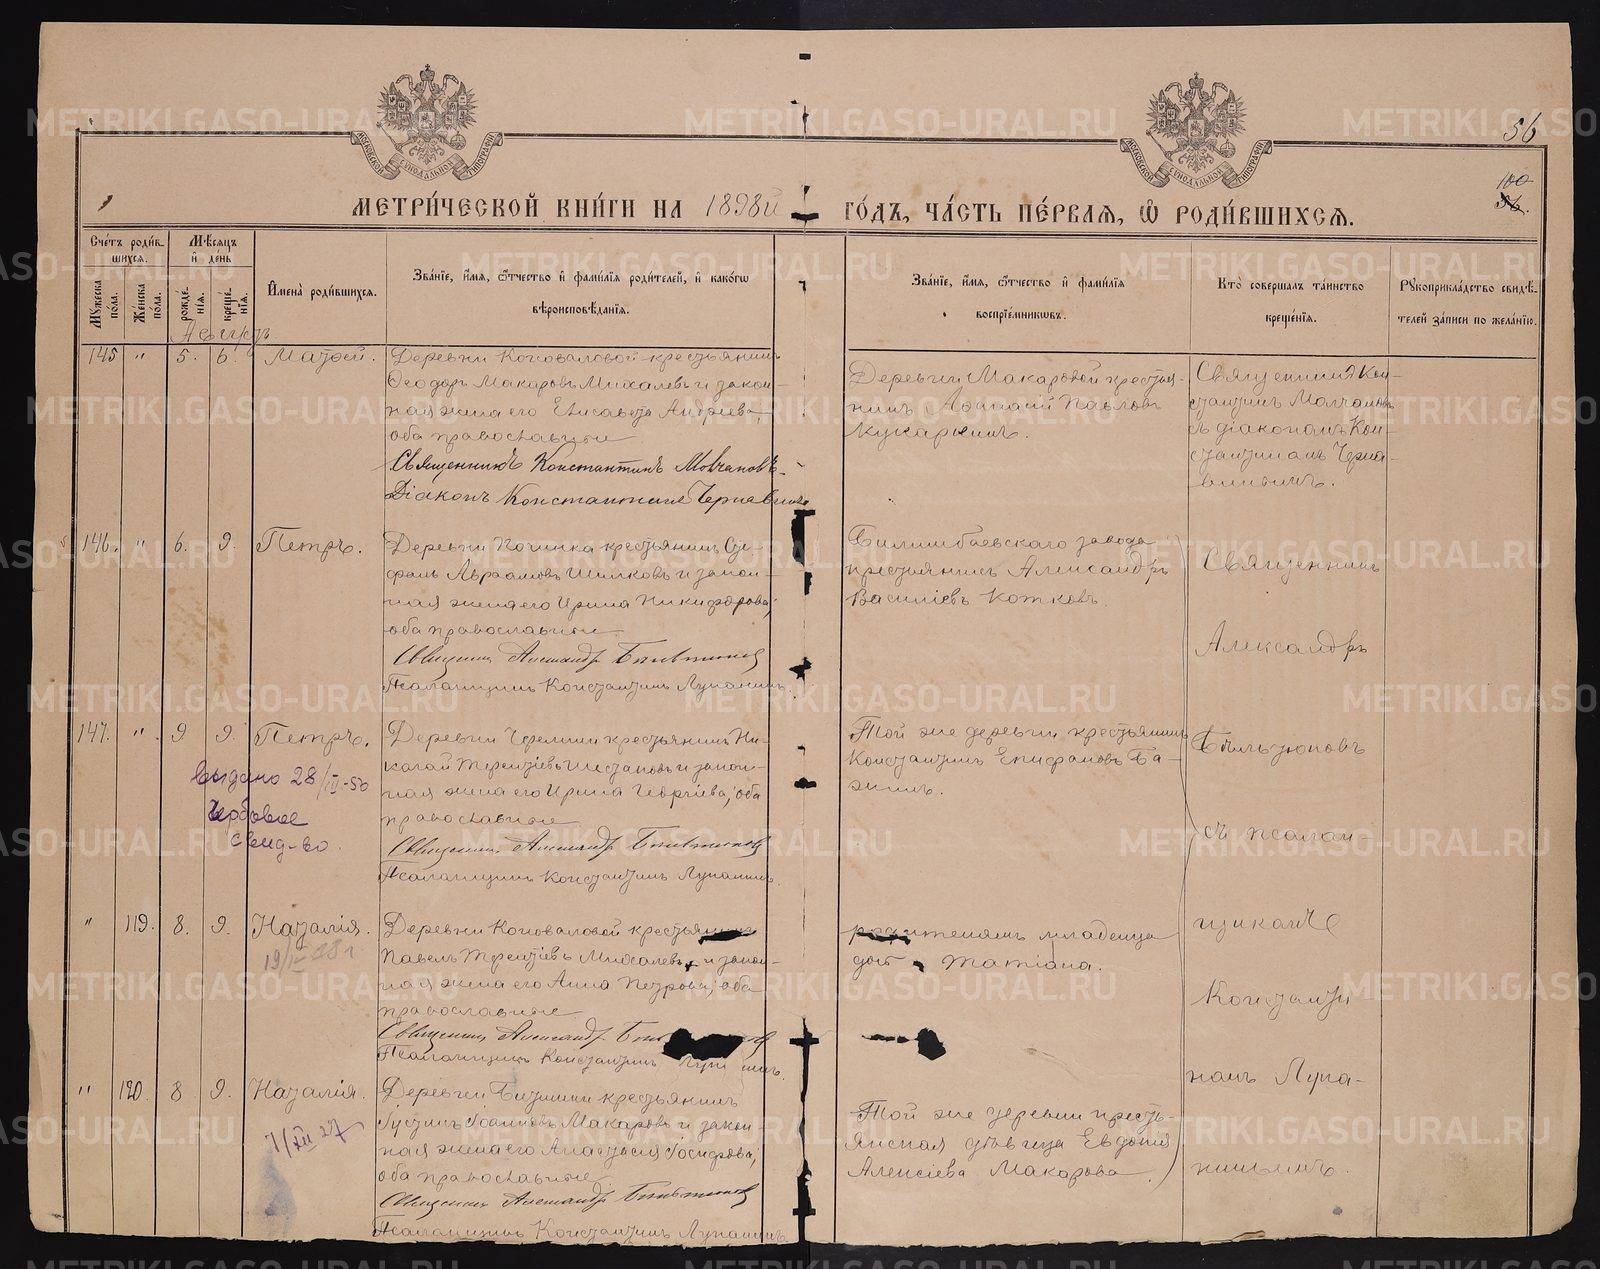 METRIKI.GASO-URAL.RU
МОСКОВСКОЙ СѴНОДАЛЬНОЙ ТИПОГРАФІИ
МОСКОВСКОЙ СѴНОДАЛЬНОЙ ТИПОГРАФІИ
56
100
56.
МЕТРИ́ЧЕСКОЙ КНИ́ГИ НА 1898й
ГО́ДЪ, ЧА́СТЬ ПЕ́РВАЯ, Ѡ РОДИ́ВШИХСЯ.
Сче́тъ роди́вшихся.
Мꙋ́жеска по́ла.
Же́нска по́ла.
Мѣ́сяцъ и҆ день
рожде́нїя.
креще́нїя.
И҆мена̀ роди́вшихся.
Зва́нїе, и҆́мя, ѻ҆́тчество и҆ фами́лїя роди́телей, и҆ како́гѡ
вѣроисповѣ́данїя.
Зва́нїе, и҆́мя, ѻ҆́тчество и҆ фами́лїя
воспрїе́мникѡвъ.
Кто̀ соверша́лъ та́инство
креще́нїя.
Рꙋкоприкла́дство свидѣ́-
телей за́писи по жела́нїю.
Августъ
145 " 5. 6. Матѳей.
Деревни Коноваловой крестьянинъ
Ѳеодоръ Макаровъ Михалевъ и закон-
ная жена его Елисавета Андреева,
оба православные
Священникъ Константинъ Молчановъ
Діаконъ Константинъ Чернавинъ
Деревни Макаровой крестья-
нинъ Аѳанасій Павловъ
Кукаркинъ.
Священникъ Кон-
стантинъ Молчановъ
съ діакономъ Кон-
стантиномъ Черна-
винымъ.
146. " 6. 9. Петръ.
Деревни Починка крестьянинъ Сте-
фанъ Авраамовъ Шилковъ и закон-
ная жена его Ирина Никифорова,
оба православные
Псаломщикъ Константинъ Лупанинъ.
Билимбаевскаго завода
крестьянинъ Александръ
Василіевъ Котковъ.
Священникъ
Александръ
147. " 9 9. Петръ.
выдано 28/III-50
гербовое
свид-во.
Деревни Черемши крестьянинъ Ни-
колай Терентіевъ Шестаковъ и закон-
ная жена его Ирина Георгіева, оба
православные
Псаломщикъ Константинъ Лупанинъ.
Той же деревни крестьянинъ
Константинъ Епифановъ Ба-
жинъ.
съ псалом-
" 119. 8. 9. Наталія.
Деревни Коноваловой крестьянинъ
Павелъ Терентіевъ Михалевъ и закон-
ная жена его Анна Петрова, оба
православные
Псаломщикъ Константинъ
младенца
Татіана.
щикомъ
Константи-
номъ Лупа-
" 120. 8 9. Наталія.
7/XII 27
Деревни крестьянинъ
Іустинъ Іоанновъ Макаровъ и закон-
ная жена его Анастасія Іосифова,
оба православные
Псаломщикъ Константинъ Лупанинъ
Той же деревни кресть-
янская дѣвица Евдокія
Алексіева Макарова.
нинымъ.